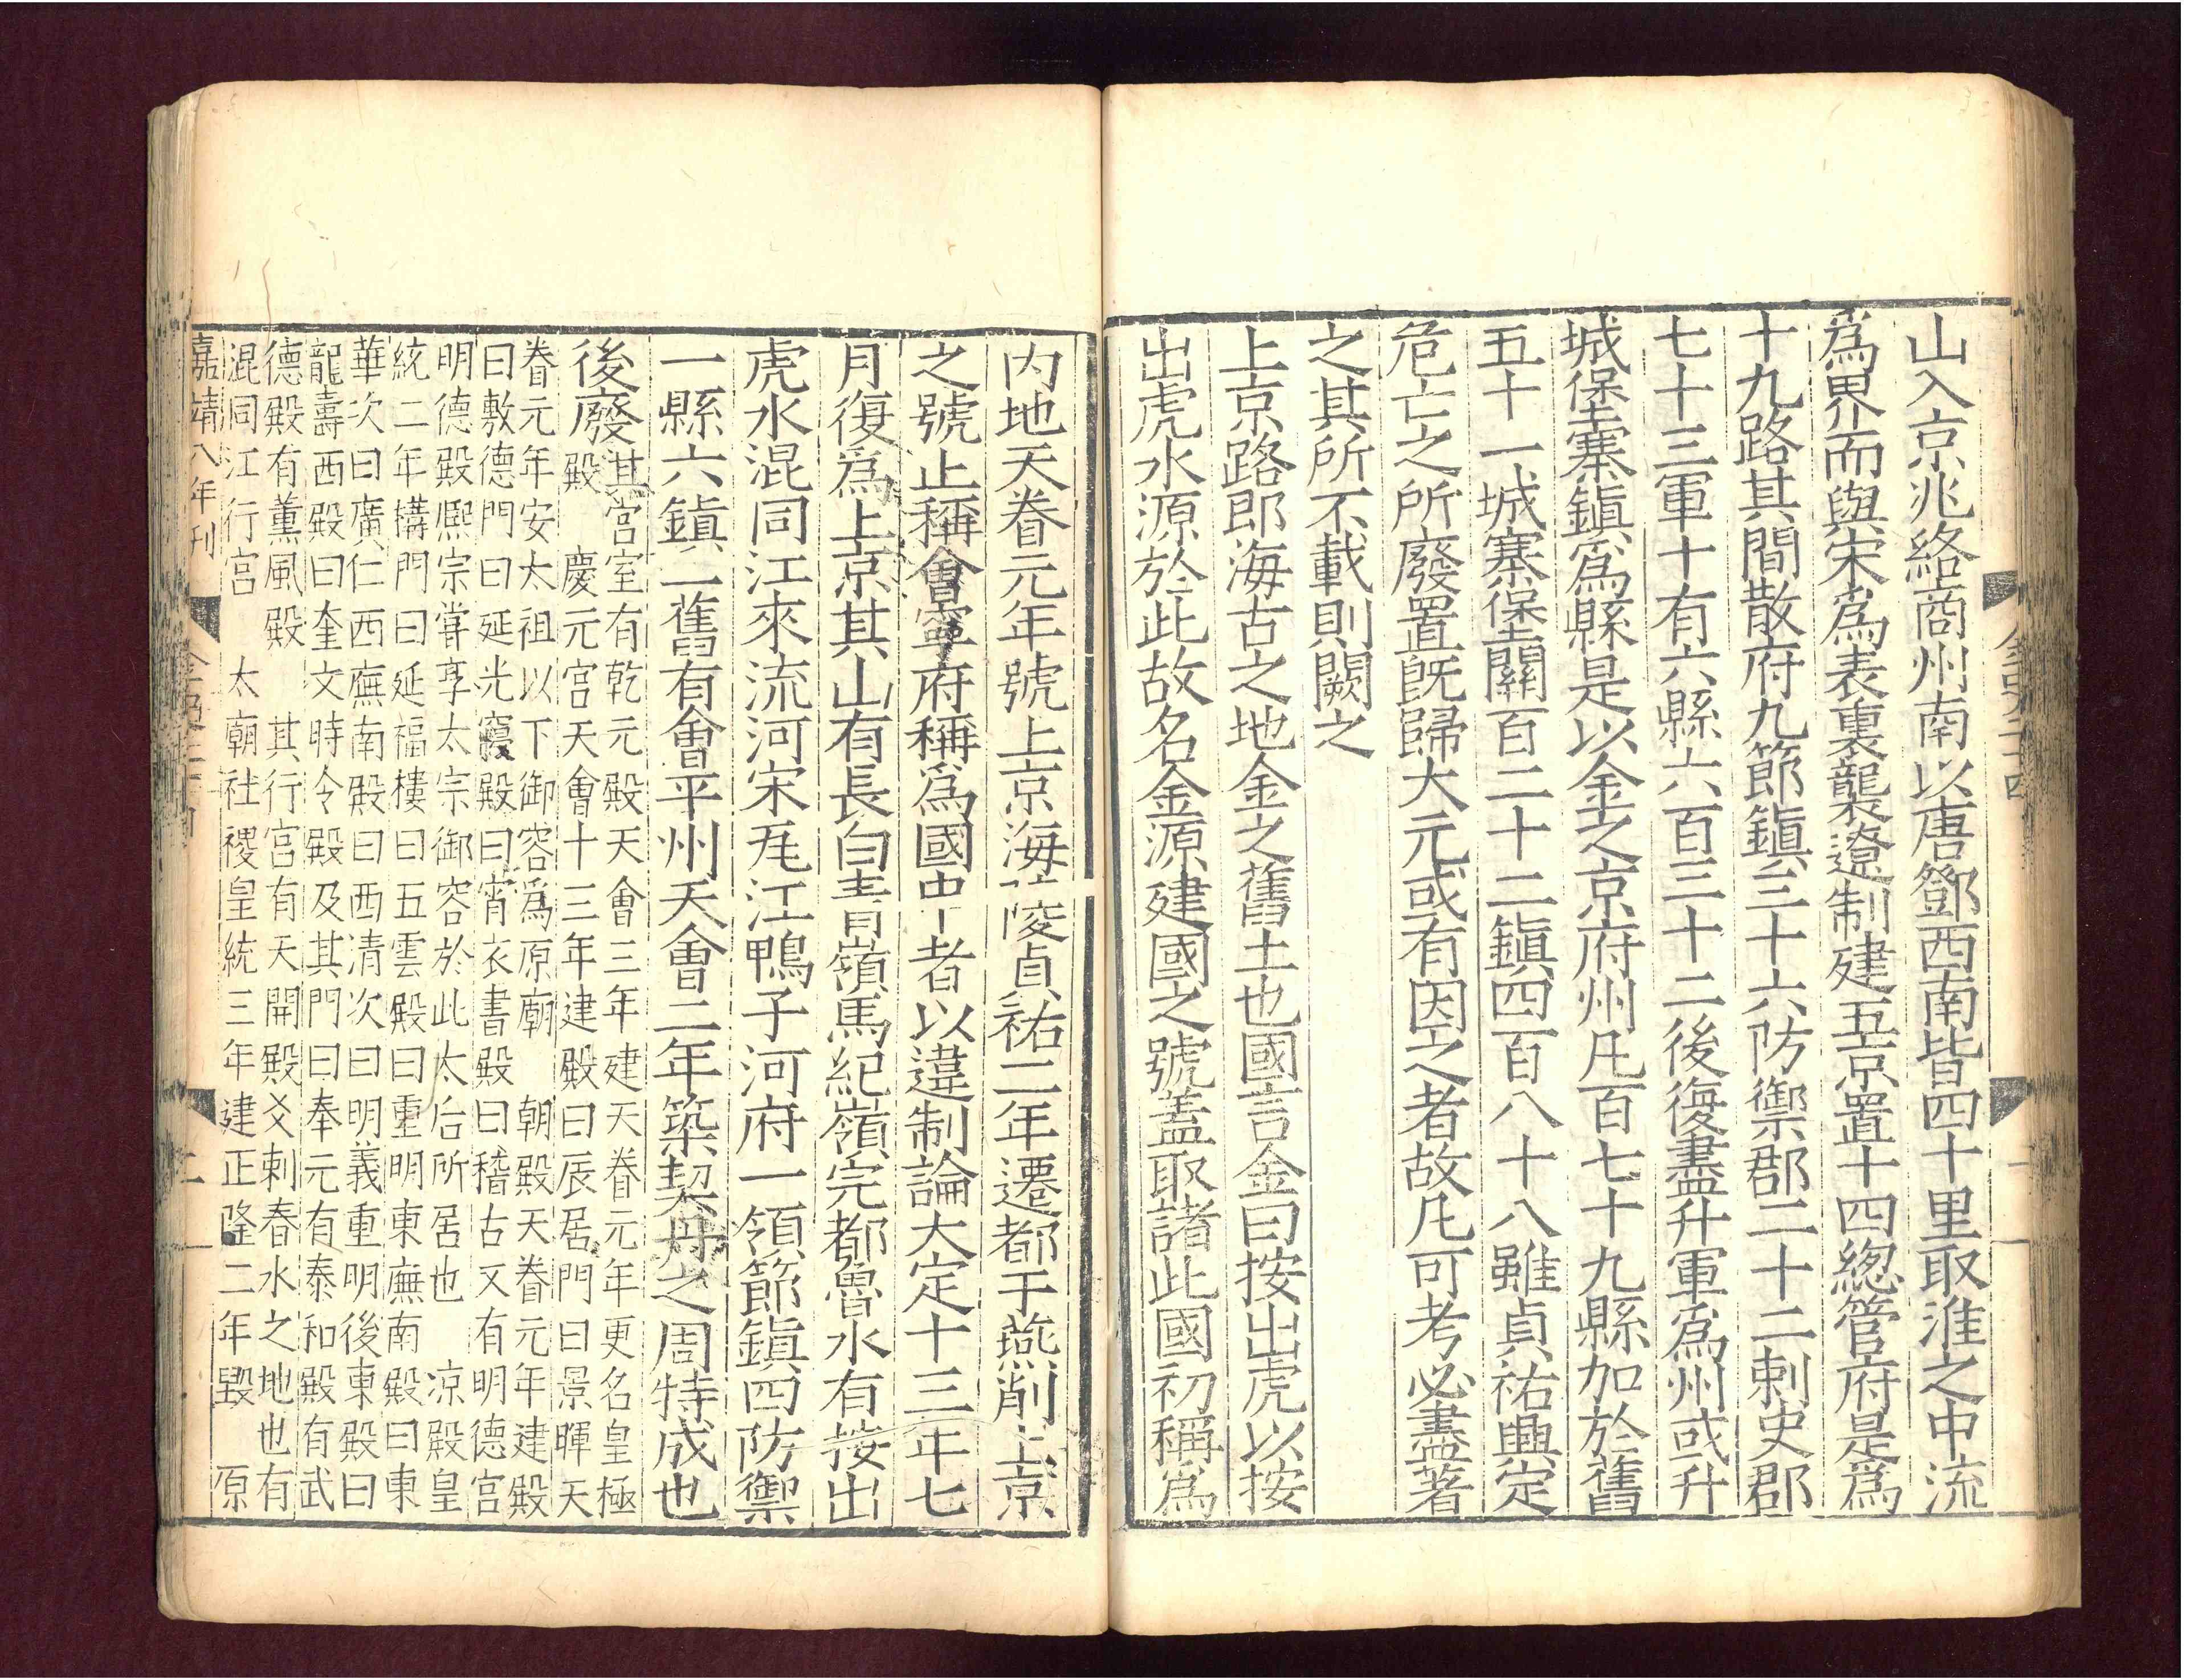 山入京兆絡商州南以唐鄧西南皆四十里取淮之中流
爲界而與宋爲表裏襲遼制建五京置十四緫管府是爲
十九路其間散府九節鎮三十六防禦郡二十二刺史郡
七十三軍十有六縣六百三十二後復盡升軍爲州或升
城堡寨鎮爲縣是以金之京府州凡百七十九縣加於舊
五十一城寨堡關百二十二鎮四百八十八雖貞祐興定
危亡之所廢置旣歸大元或有因之者故凡可考必盡著
之其所不載則闕之
上京路即海古之地金之舊土也國言金曰按出虎以按
出虎水源於此故名金源建國之號蓋取諸此國初稱爲
內地天眷元年號上京海陵貞祐二年遷都于燕削上京
之號止稱會寧府稱爲國中者以違制論大定十三年七
月復爲上京其山有長白青嶺馬紀嶺完都魯水有按出
虎水混同江來流河宋瓦江鴨子河府一領節鎮四防禦
一縣六鎮一舊有會平州天會二年築契丹之周特城也
後廢其宮室有乾元殿天會三年建天眷元年更名皇極
殿 慶元宮天會十三年建殿曰辰居門曰景暉天
眷元年安太祖以下御容爲原廟 朝殿天眷元年建殿
曰敷德門曰延光寢殿曰宵衣書殿曰稽古又有明德宮
明德殿熈宗嘗享太宗御容於此太后所居也 凉殿皇
統二年構門曰延福樓曰五雲殿曰重明東廡南殿曰東
華次曰廣仁西廡南殿曰西清次曰明義重明後東殿曰
龍壽西殿曰奎文時令殿及其門曰奉元有泰和殿有武
德殿有薰風殿 其行宮有天開殿爻剌春水之地也有
混同江行宮 太廟社稷皇統三年建正隆二年毀 原
嘉靖八年刊 金史二十四 二